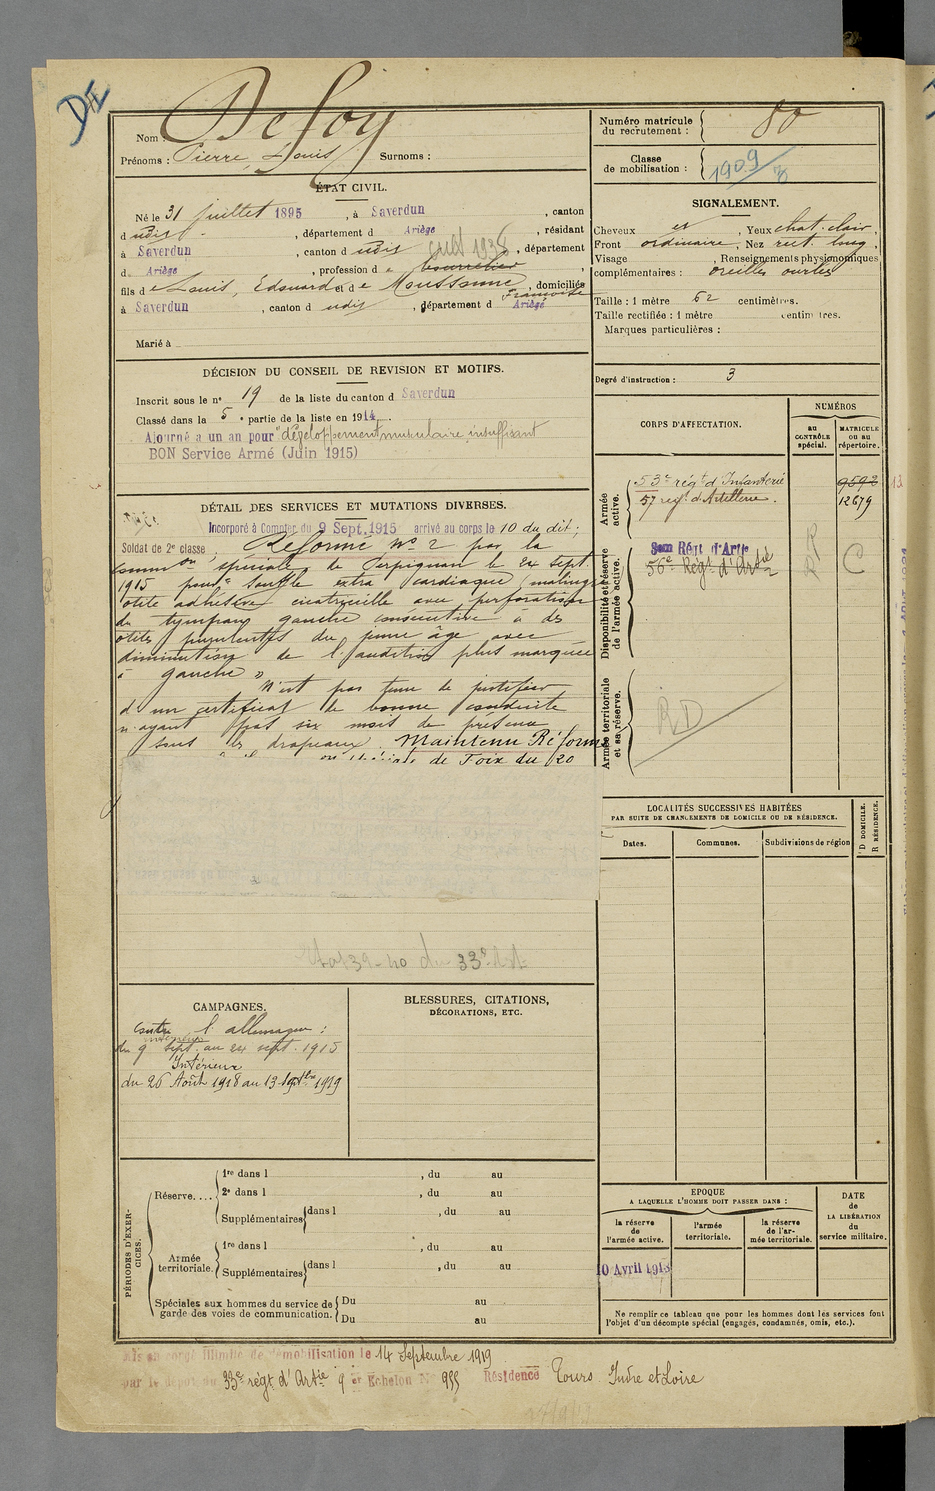 DE
Nom : Defoy
Prénoms : Pierre, Louis Surnoms :
Numéro matricule du recrutement : 80
Classe de mobilisation : 1909
ÉTAT CIVIL.
Né le 31 juillet 1895, à Saverdun, canton
d udit, département d Ariège, résidant
à Saverdun, canton d udit, département
d Ariège, profession d e bourrelier
fils de Louis, Edouard et de Moussonne Françoise, domiciliés
à Saverdun, canton d udit, département d Ariège
Marié à
SIGNALEMENT.
Cheveux , Yeux chat. clair,
Front ordinaire, Nez rect. long,
Visage , Renseignements physionomiques
complémentaires : oreilles ourlées
Taille : 1 mètre 62 centimètres.
Taille rectifiée : 1 mètre centimètres.
Marques particulières :
Degré d'instruction : 3
DÉCISION DU CONSEIL DE REVISION ET MOTIFS.
Inscrit sous le n° 19 de la liste du canton d Saverdun
Classé dans la 5e partie de la liste en 1914.
Ajourné a un an pour "développement musculaire insuffisant
BON Service Armé (Juin 1915)
DÉTAIL DES SERVICES ET MUTATIONS DIVERSES.
Incorporé à Compter du 9 Sept. 1915 arrivé au corps le 10 du dit;
Soldat de 2e classe. Réformé N° 2 par la
Common spéciale de Perpignan le 24 sept.
1915 pour "Souffle extra cardiaque,
otite adhésive cicatricielle avec perforation
du tympan gauche consécutive à des
otites purulentes du jeune âge avec
diminution de l'audition plus marquée
à gauche »
N'est pas tenu de justifier
d'un certificat de bonne conduite
n'ayant pas six mois de présence
sous les drapeaux. Maintenu Réformé
de Foix du 20
39-40 du 33e Art
CORPS D'AFFECTATION.
NUMÉROS
au CONTRÔLE spécial.
MATRICULE ou au répertoire.
Armée active.
53e régt d'Infanterie 9592
57 régt d'Artillerie. 12679
Disponibilité et réserve de l'armée active.
Régt d'Artie
56e Régt d'Artie
C
Armée territoriale et sa réserve.
RD
LOCALITÉS SUCCESSIVES HABITÉES
PAR SUITE DE CHANGEMENTS DE DOMICILE OU DE RÉSIDENCE.
Dates.
Communes.
Subdivisions de région
D DOMICILE.
R RÉSIDENCE.
CAMPAGNES.
Contre l'allemagne :
intérieur
du 9 sept. au 24 sept. 1915
Intérieur
du 26 Août 1918 au 13 septbre 1919
BLESSURES, CITATIONS,
DÉCORATIONS, ETC.
PÉRIODES D'EXERCICES.
Réserve....
1re dans l , du au
2e dans l , du au
Supplémentaires dans l , du au
Armée territoriale.
1re dans l , du au
Supplémentaires dans l , du au
Spéciales aux hommes du service de garde des voies de communication.
Du au
Du au
EPOQUE
A LAQUELLE L'HOMME DOIT PASSER DANS :
la réserve de l'armée active.
l'armée territoriale.
la réserve de l'armée territoriale.
DATE de LA LIBÉRATION du service militaire.
10 Avril 1918
Ne remplir ce tableau que pour les hommes dont les services font
l'objet d'un décompte spécial (engagés, condamnés, omis, etc.).
Mis en congé illimité de démobilisation le 14 Septembre 1919
par le dépôt du 33e régt d'Artie 9 er Echelon N° 955 Résidence Tours Indre et Loire